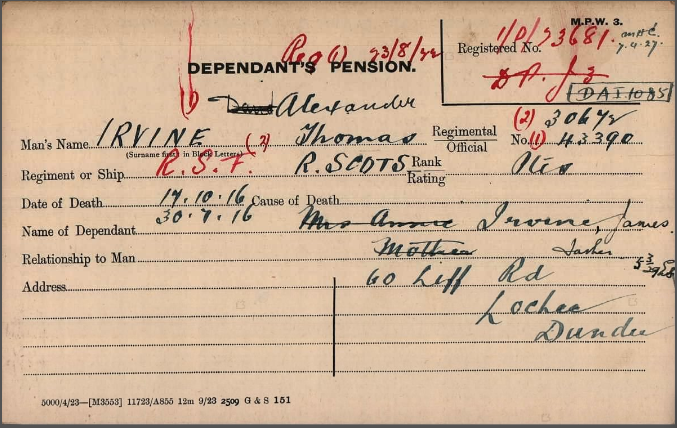 M.P.W. 3.
Reg (1) 23/8/22
Registered No. 1/D/23681. 7.4.27.
DEPENDANT'S PENSION.
D.A.I. 1085
(1) David Alexander
(2) 30672
Man's Name IRVINE (2) Thomas Regimental Official No. (1) 43390
(Surname first in Block Letters)
Regiment or Ship R.S.F. R. SCOTS Rank Rating Ptes
Date of Death 17.10.16 Cause of Death
30.7.16
Name of Dependant Mrs Annie Irvine, James.
Relationship to Man Mother Father
Address 60 Liff Rd
Lochee
Dundee
5000/4/23—[M3553] 11723/A855 12m 9/23 2509 G & S 151